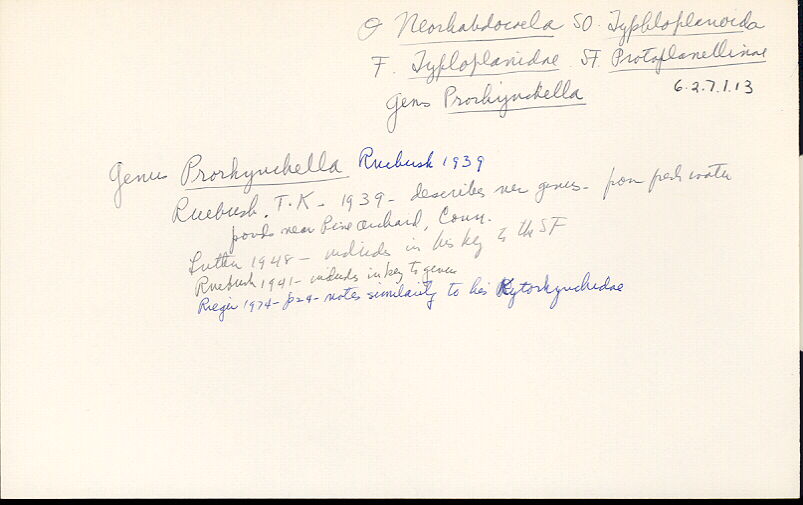 O Neorhabdocoela SO. Typhloplanoida
F. Typloplanidae SF. Protoplanellinae
Genus Prorhynchella 6.2.7.1.13
Genus Prorhynchella Ruebush 1939
Ruebush, T.K - 1939 - describes new genus - from fresh water
ponds near Pine Orchard, Conn.
Luther 1948 - includes in his key to the SF
Ruebush 1941 - includes in key to genera
Rieger 1974 - p24 - notes similarity to his Kytorhynchidae